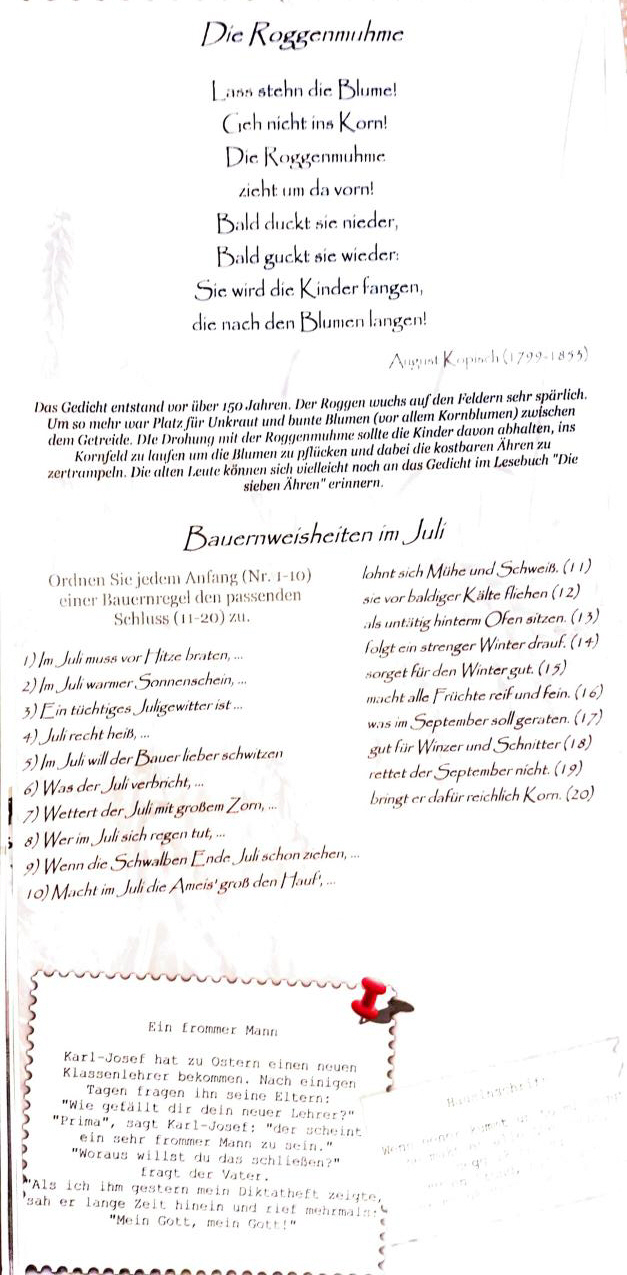 Die Roggenmuhme
Lass stehn die Blume!
Geh nicht ins Korn!
Die Roggenmuhme
zieht um da vorn!
Bald duckt sie nieder,
Bald guckt sie wieder:
Sie wird die Kinder fangen,
die nach den Blumen langen!
August Kopisch (1799-1853)
Das Gedicht entstand vor über 150 Jahren. Der Roggen wuchs auf den Feldern sehr spärlich.
Um so mehr war Platz für Unkraut und bunte Blumen (vor allem Kornblumen) zwischen
dem Getreide. DIe Drohung mit der Roggenmuhme sollte die Kinder davon abhalten, ins
Kornfeld zu laufen um die Blumen zu pflücken und dabei die kostbaren Ähren zu
zertrampeln. Die alten Leute können sich vielleicht noch an das Gedicht im Lesebuch "Die
sieben Ähren" erinnern.
Bauernweisheiten im Juli
Ordnen Sie jedem Anfang (Nr. 1-10)
einer Bauernregel den passenden
Schluss (11-20) zu.
1) Im Juli muss vor Hitze braten, ...
2) Im Juli warmer Sonnenschein, ...
3) Ein tüchtiges Juligewitter ist ...
4) Juli recht heiß, ...
5) Im Juli will der Bauer lieber schwitzen
6) Was der Juli verbricht, ...
7) Wettert der Juli mit großem Zorn, ...
8) Wer im Juli sich regen tut, ...
9) Wenn die Schwalben Ende Juli schon ziehen, ...
10) Macht im Juli die Ameis' groß den Hauf', ...
lohnt sich Mühe und Schweiß. (11)
sie vor baldiger Kälte fliehen (12)
als untätig hinterm Ofen sitzen. (13)
folgt ein strenger Winter drauf. (14)
sorget für den Winter gut. (15)
macht alle Früchte reif und fein. (16)
was im September soll geraten. (17)
gut für Winzer und Schnitter (18)
rettet der September nicht. (19)
bringt er dafür reichlich Korn. (20)
Ein frommer Mann
Karl-Josef hat zu Ostern einen neuen
Klassenlehrer bekommen. Nach einigen
Tagen fragen ihn seine Eltern:
"Wie gefällt dir dein neuer Lehrer?"
"Prima", sagt Karl-Josef: "der scheint
ein sehr frommer Mann zu sein."
"Woraus willst du das schließen?"
fragt der Vater.
"Als ich ihm gestern mein Diktatheft zeigte,
sah er lange Zeit hinein und rief mehrmals:
"Mein Gott, mein Gott!"
Wenn